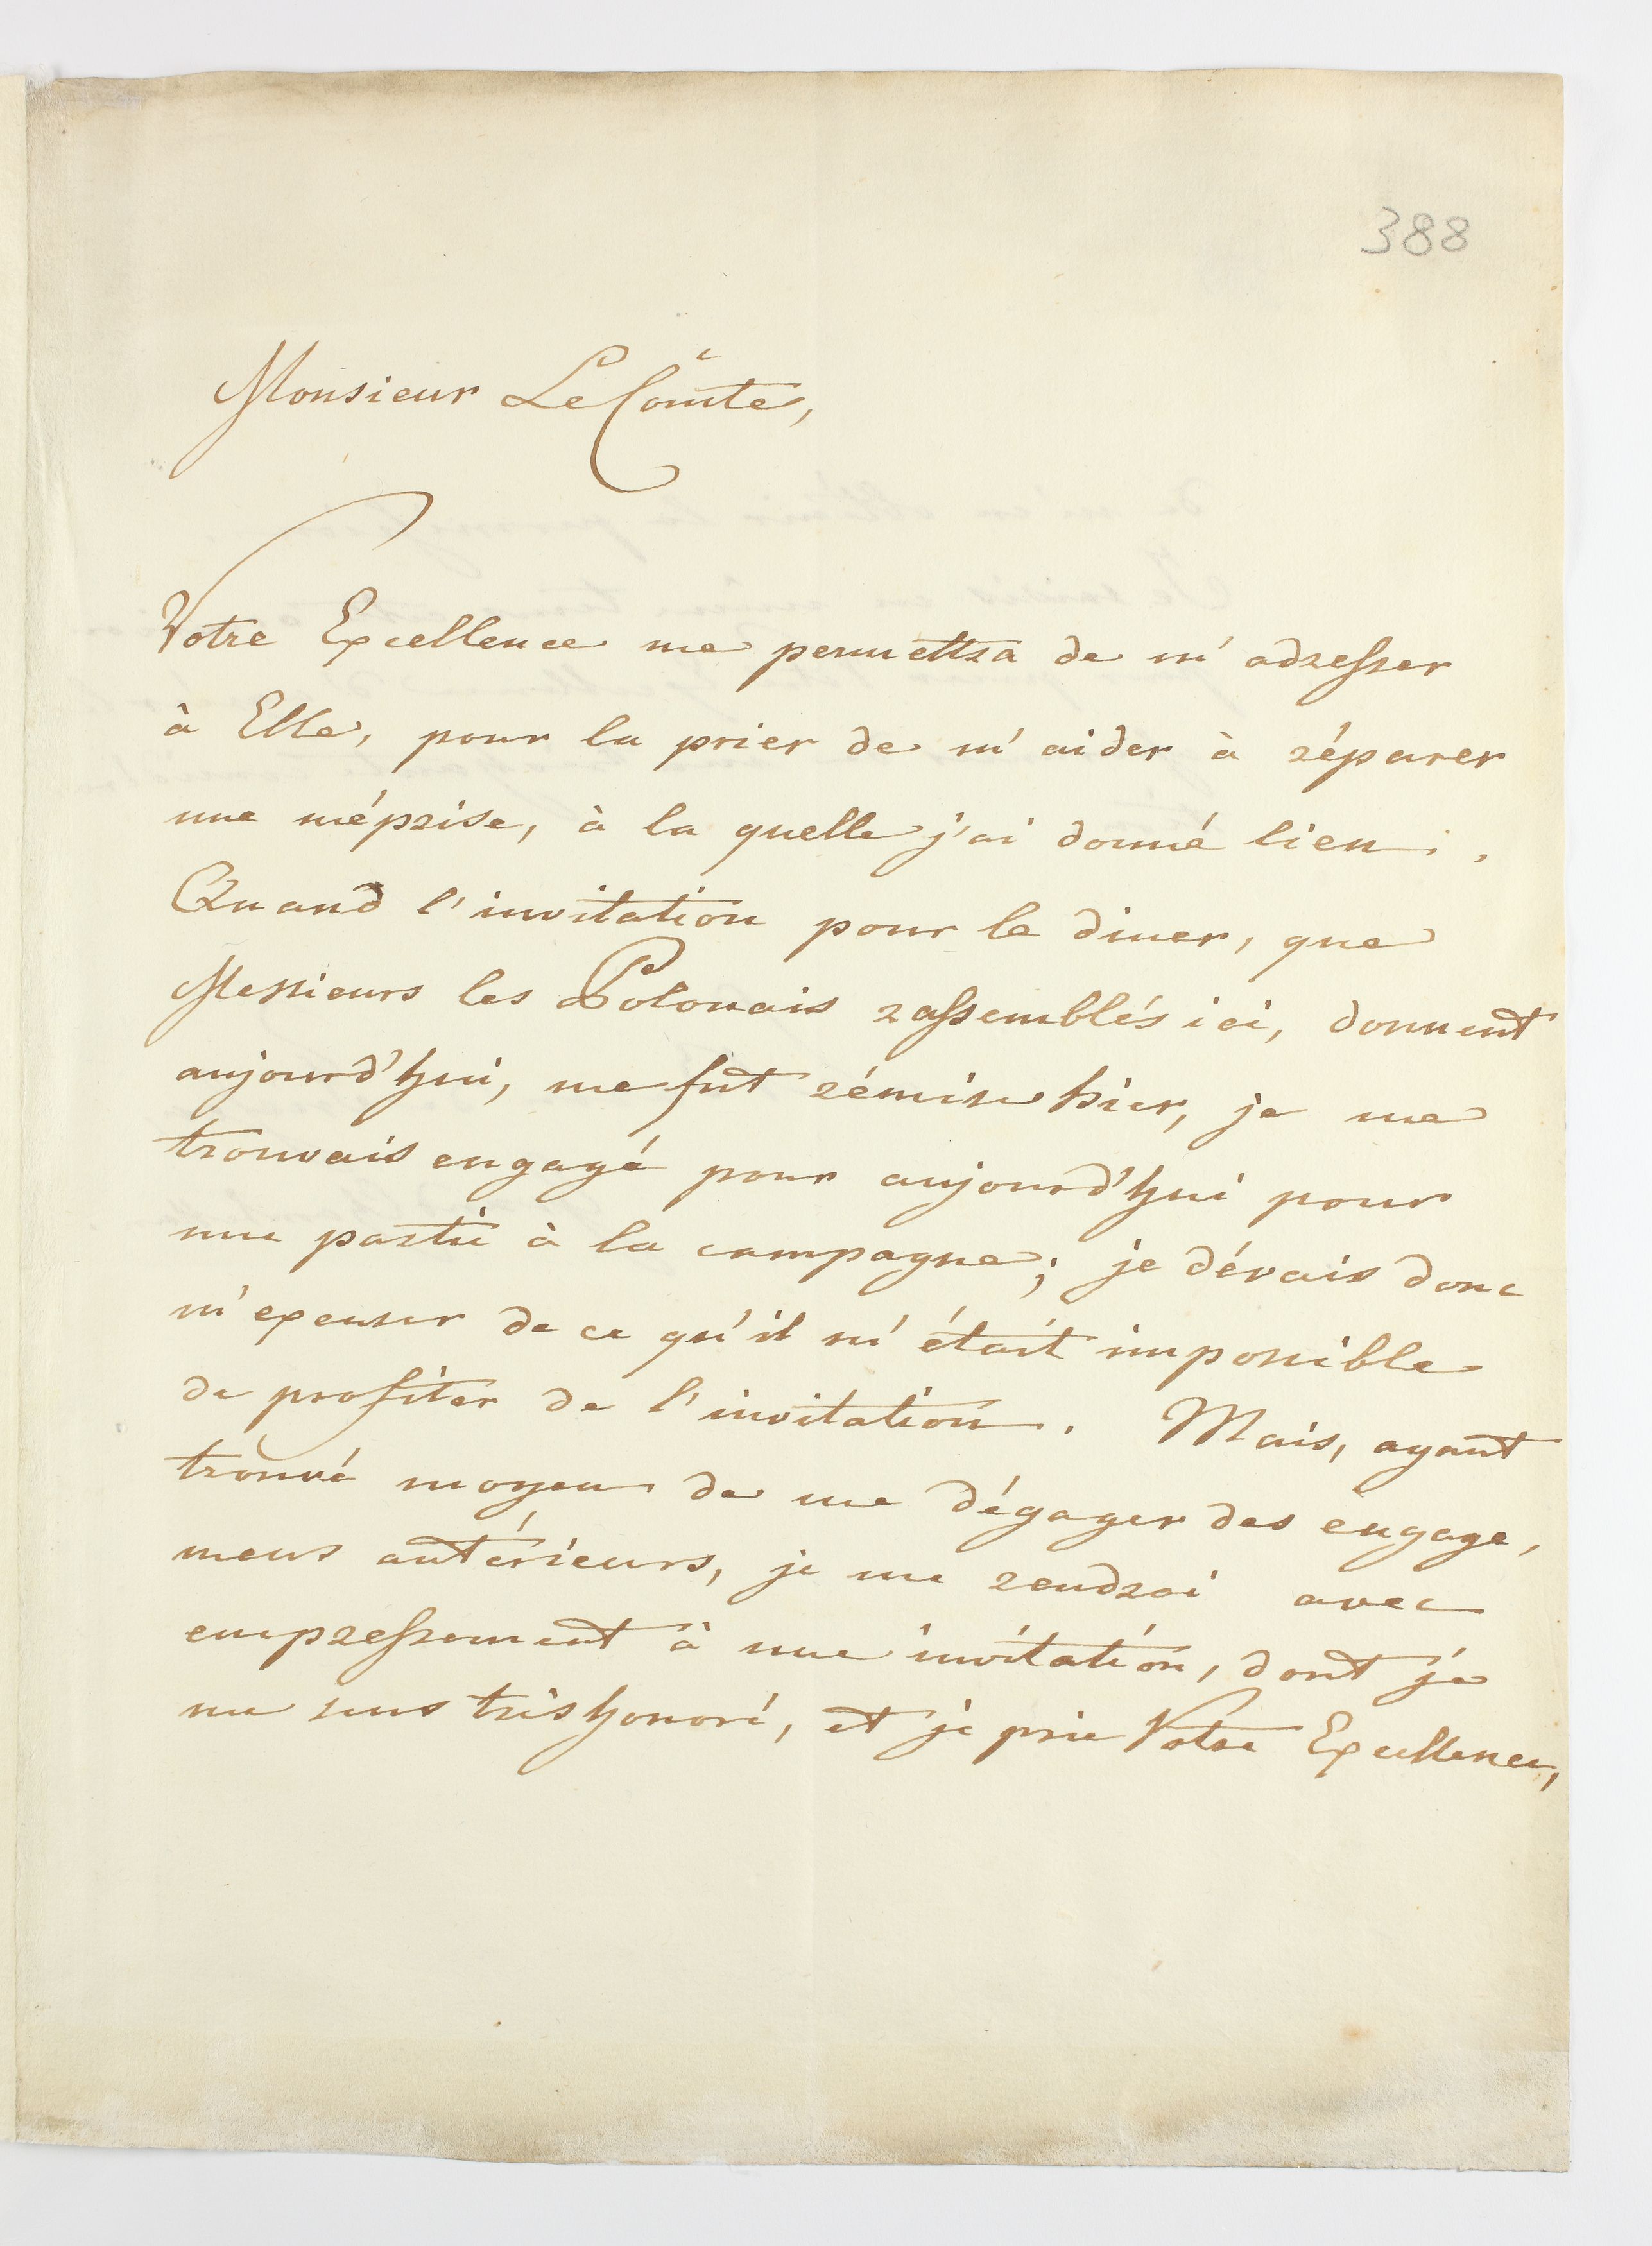 388
Monsieur Le Comte,
Votre Excellence me permettra de m'adresser
à Elle, pour la prier de m'aider à réparer
une méprise, à la quelle j'ai donné lieu.
Quand l'invitation pour le diner, que
Messieurs les Polonais rassemblés ici, donnent
aujourd'hui, me fut rémise hier, je me
trouvais engagé pour aujourd'hui pour
une partie à la campagne; je dévais donc
m'excuser de ce qu'il m'était impossible
de profiter de l'invitation. Mais, ayant
trouvé moyen de me dégager des engage,
mens antérieurs, je me rendrai avec
empressement à une invitation, dont je
me sens très honoré, et je prie Votre Excellence,